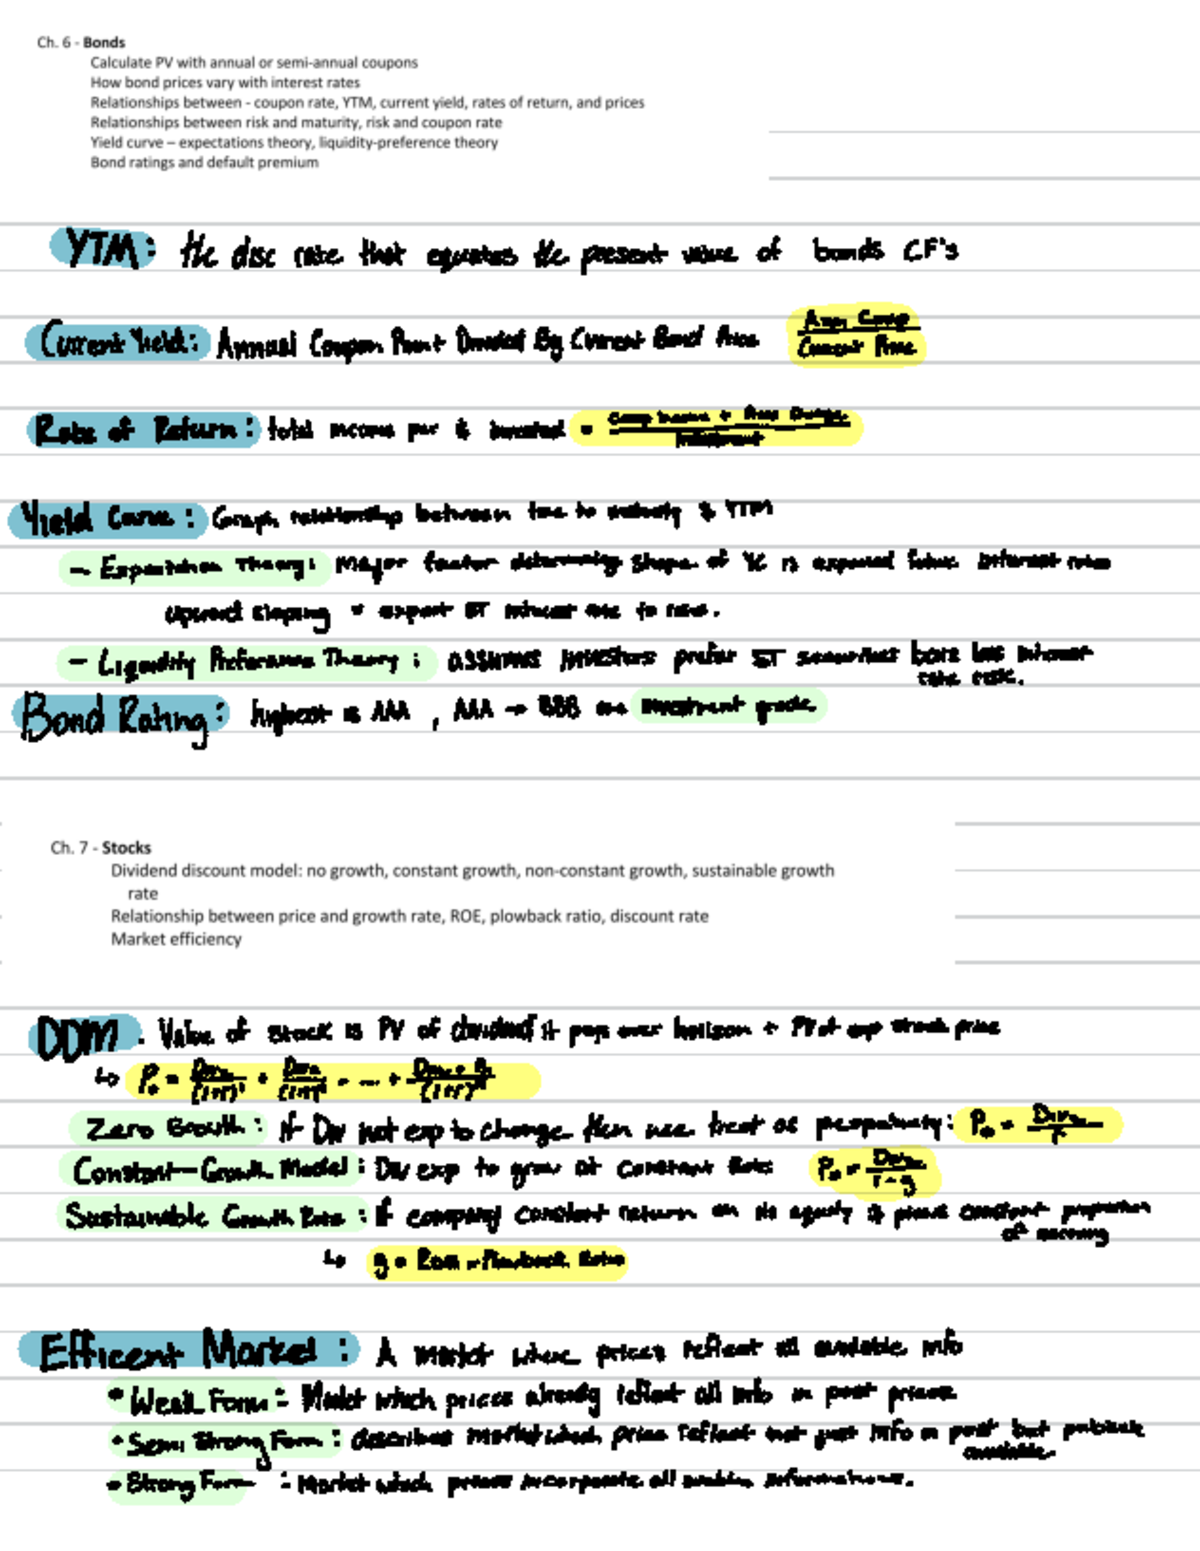 Ch. 6 - Bonds
Calculate PV with annual or semi-annual coupons
How bond prices vary with interest rates
Relationships between - coupon rate, YTM, current yield, rates of return, and prices
Relationships between risk and maturity, risk and coupon rate
Yield curve – expectations theory, liquidity-preference theory
Bond ratings and default premium
YTM: the disc rate that equates the present value of bonds CF's
Current Yield: Annual Coupon Divided By Current Bond Price Ann Coup / Current Price
Rate of Return: total income per $ invested =
Yield Curve: Graph relationship between time to maturity & YTM
- Expectation Theory: major factor determining shape of YC is expected future interest rates
upward sloping = expect ST interest rate to raise.
- Liquidity Preference Theory: assumes investors prefer ST securities less interest
rate risk.
Bond Rating: highest is AAA, AAA → BBB are investment grade
Ch. 7 - Stocks
Dividend discount model: no growth, constant growth, non-constant growth, sustainable growth
rate
Relationship between price and growth rate, ROE, plowback ratio, discount rate
Market efficiency
DDM: Value of stock is PV of dividend it pays over horizon + PV of exp stock price
Zero Growth: if Div not exp to change then treat as perpetuity:
Constant-Growth Model: Div exp to grow at constant Rate
Sustainable Growth Rate: if company constant return on its equity & constant proportion
of earning
g = Plowback Ratio
Efficent Market: A market where prices reflect all available info
• Weak Form: Market which prices already reflect all info in past prices
• Semi Strong Form: describes market which price reflect not just info in past but
available.
• Strong Form: Market which prices incorporate all information.